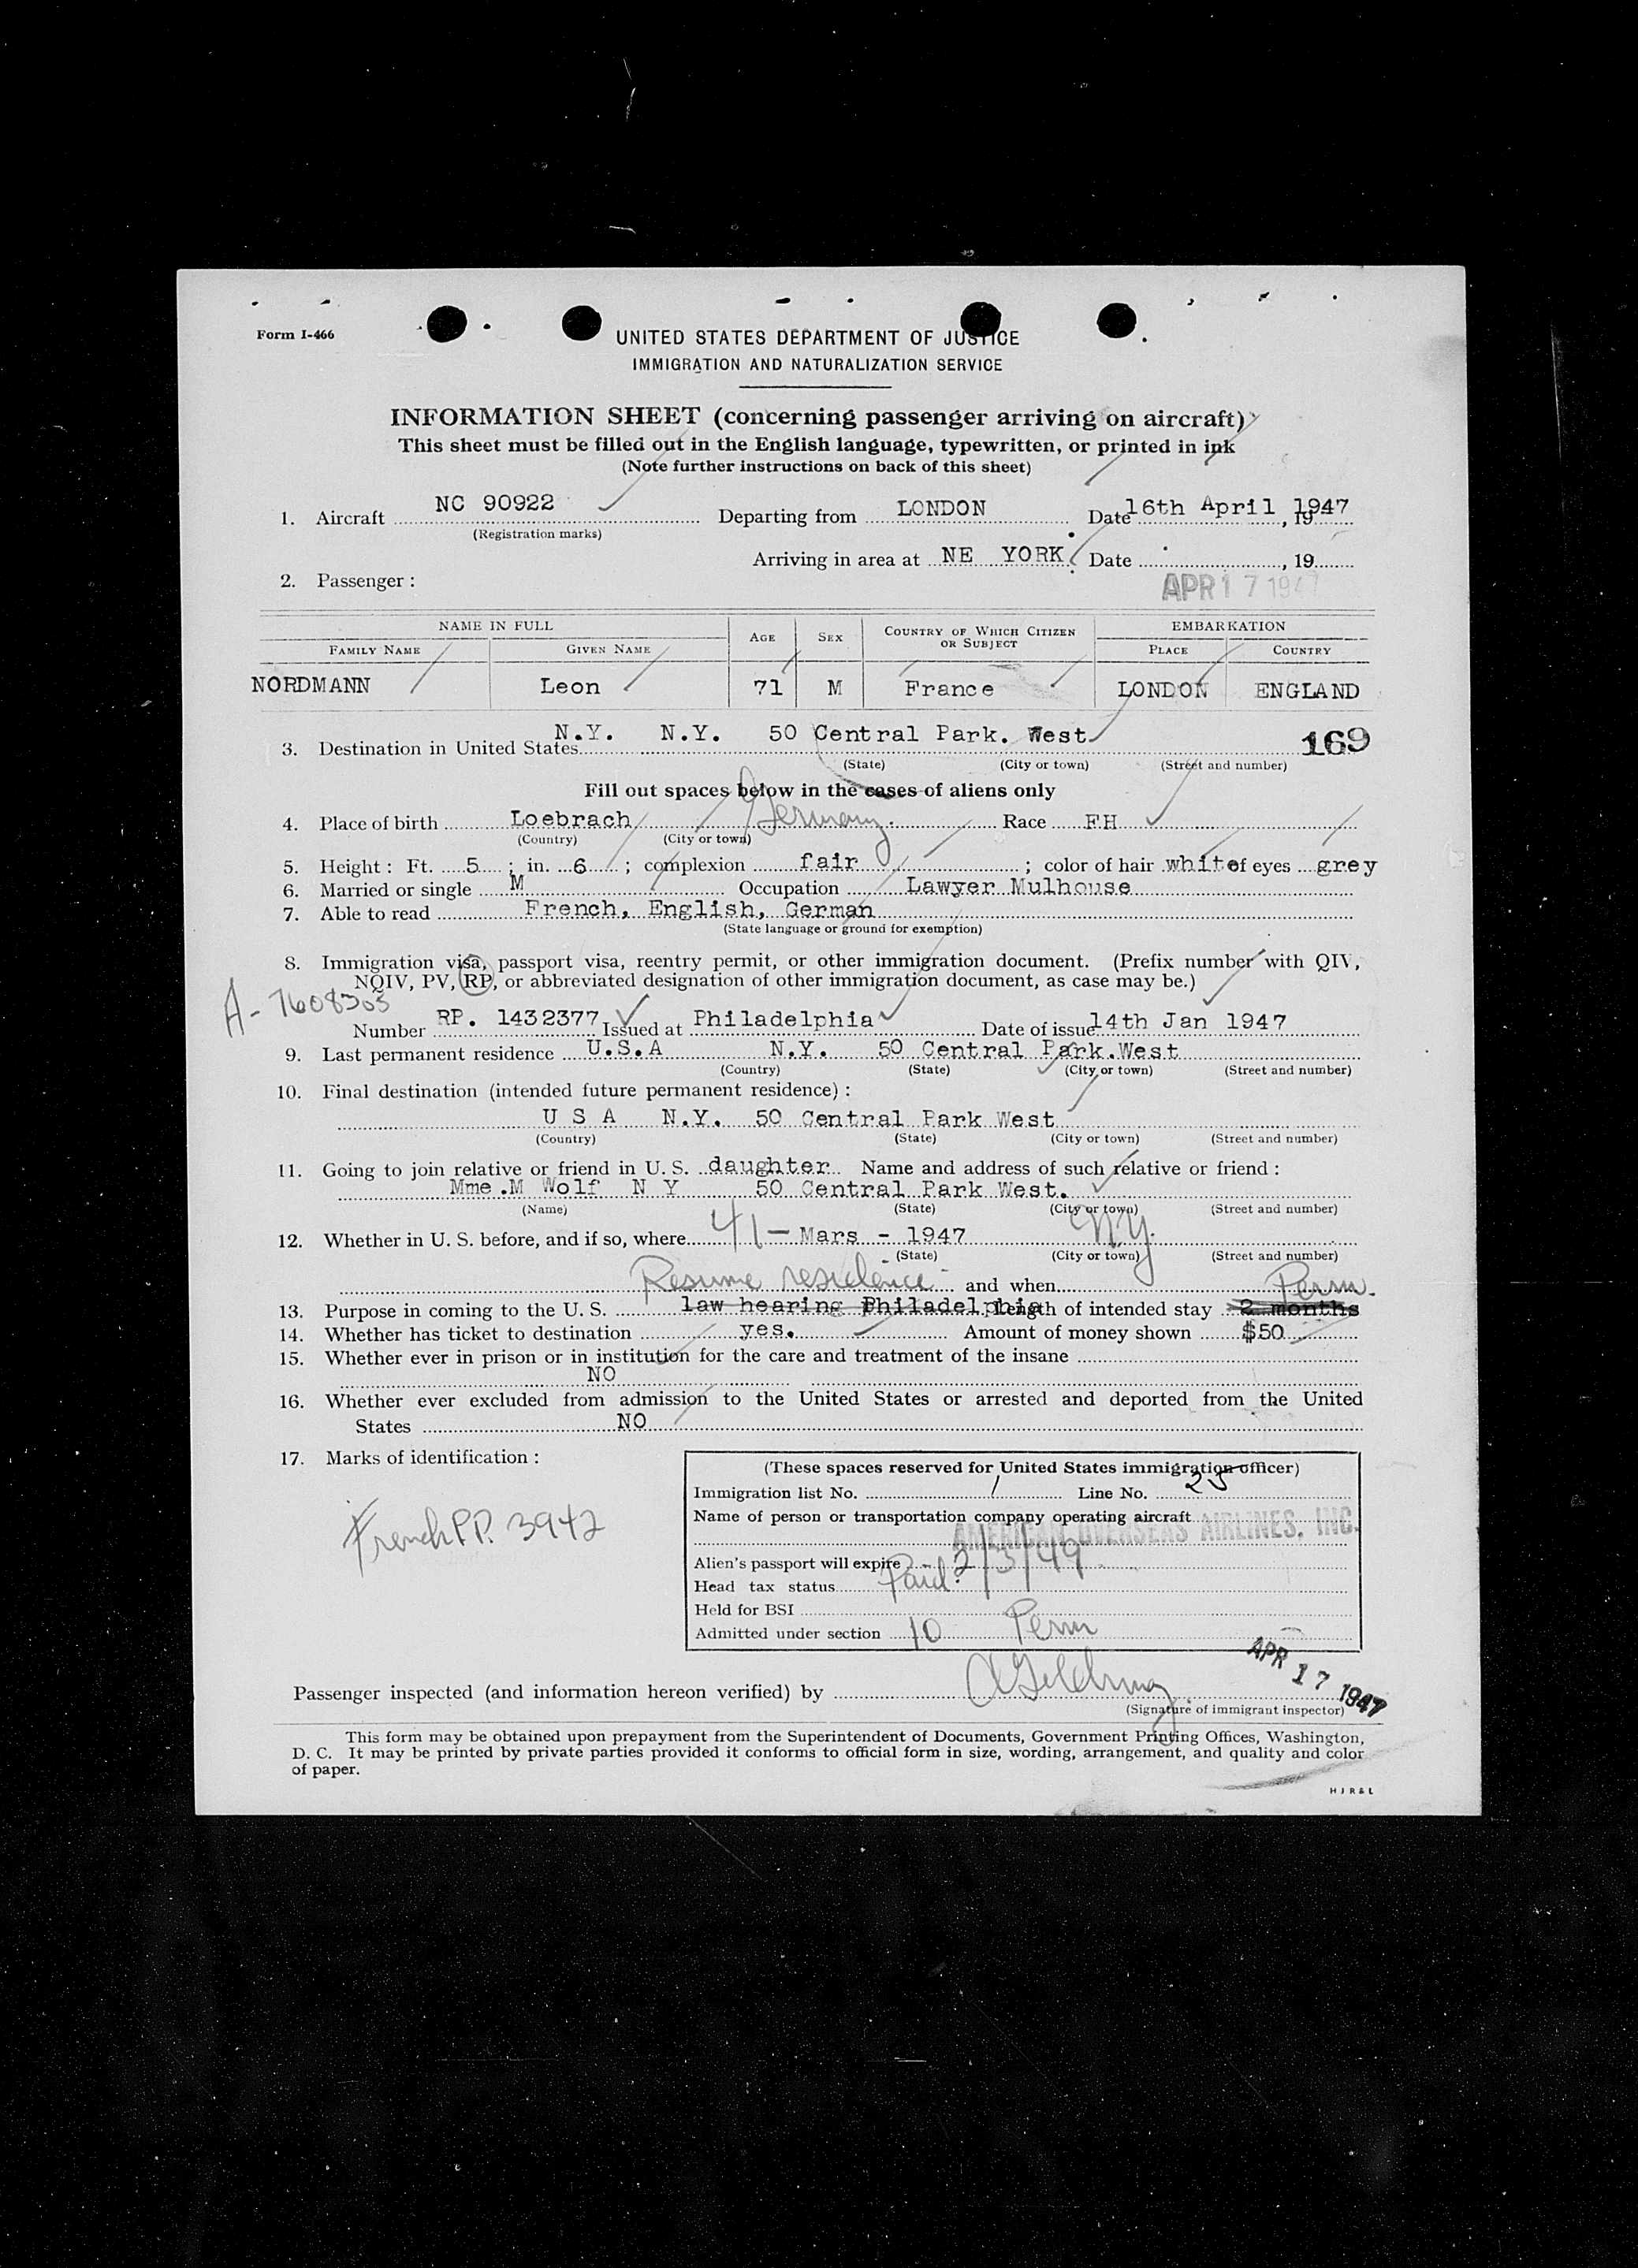 Form I-466
UNITED STATES DEPARTMENT OF JUSTICE
IMMIGRATION AND NATURALIZATION SERVICE
INFORMATION SHEET (concerning passenger arriving on aircraft)
This sheet must be filled out in the English language, typewritten, or printed in ink
(Note further instructions on back of this sheet)
1. Aircraft NC 90922 Departing from LONDON Date 16th April 1947, 19
(Registration marks)
Arriving in area at NE YORK Date , 19
2. Passenger :
APR 17 1947
NAME IN FULL AGE SEX COUNTRY OF WHICH CITIZEN OR SUBJECT EMBARKATION
FAMILY NAME GIVEN NAME PLACE COUNTRY
NORDMANN Leon 71 M France LONDON ENGLAND
3. Destination in United States N.Y. N.Y. 50 Central Park. West 169
(State) (City or town) (Street and number)
Fill out spaces below in the cases of aliens only
4. Place of birth Loebrach Germany. Race FH
(Country) (City or town)
5. Height : Ft. 5 ; in. 6 ; complexion fair ; color of hair white of eyes grey
6. Married or single M Occupation Lawyer Mulhouse
7. Able to read French, English, German
(State language or ground for exemption)
8. Immigration visa, passport visa, reentry permit, or other immigration document. (Prefix number with QIV,
NQIV, PV, RP, or abbreviated designation of other immigration document, as case may be.)
A-7608305
Number RP. 1432377 Issued at Philadelphia Date of issue 14th Jan 1947
9. Last permanent residence U.S.A N.Y. 50 Central Park.West
(Country) (State) (City or town) (Street and number)
10. Final destination (intended future permanent residence) :
U S A N.Y. 50 Central Park West
(Country) (State) (City or town) (Street and number)
11. Going to join relative or friend in U. S. daughter Name and address of such relative or friend :
Mme .M Wolf N Y 50 Central Park West.
(Name) (State) (City or town) (Street and number)
12. Whether in U. S. before, and if so, where 41 - Mars - 1947 NY.
(State) (City or town) (Street and number)
Resume residence and when Perm.
13. Purpose in coming to the U. S. law hearing Philadelphia Length of intended stay 2 months
14. Whether has ticket to destination yes. Amount of money shown $50
15. Whether ever in prison or in institution for the care and treatment of the insane
NO
16. Whether ever excluded from admission to the United States or arrested and deported from the United
States NO
17. Marks of identification :
French P.P. 3942
(These spaces reserved for United States immigration officer)
Immigration list No. 1 Line No. 25
Name of person or transportation company operating aircraft
AMERICAN OVERSEAS AIRLINES, INC.
Alien's passport will expire 2/3/49
Head tax status Paid.
Held for BSI
Admitted under section 10 Perm
APR 17 1947
Passenger inspected (and information hereon verified) by
(Signature of immigrant inspector)
This form may be obtained upon prepayment from the Superintendent of Documents, Government Printing Offices, Washington,
D. C. It may be printed by private parties provided it conforms to official form in size, wording, arrangement, and quality and color
of paper.
H J R & L